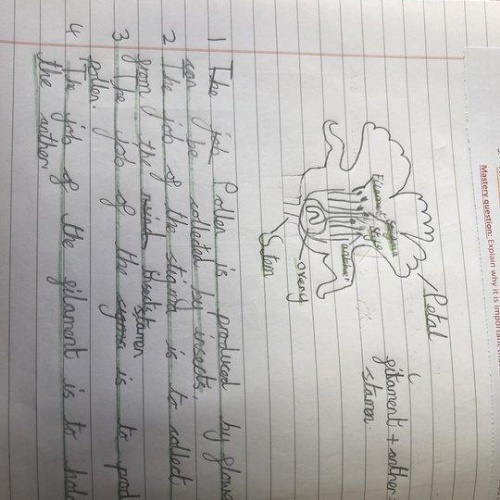 Mastery question: Explain why it is important
Petal
filament + anther =
stamen
Filament
ovary
Stem
1 The job Pollen is produced by flow
can be collected by insects.
2 The job of the stigma is to collect
from the wind stamen
3 The job of the is to prod
pollen.
4 The job of the filament is to hold
the anther